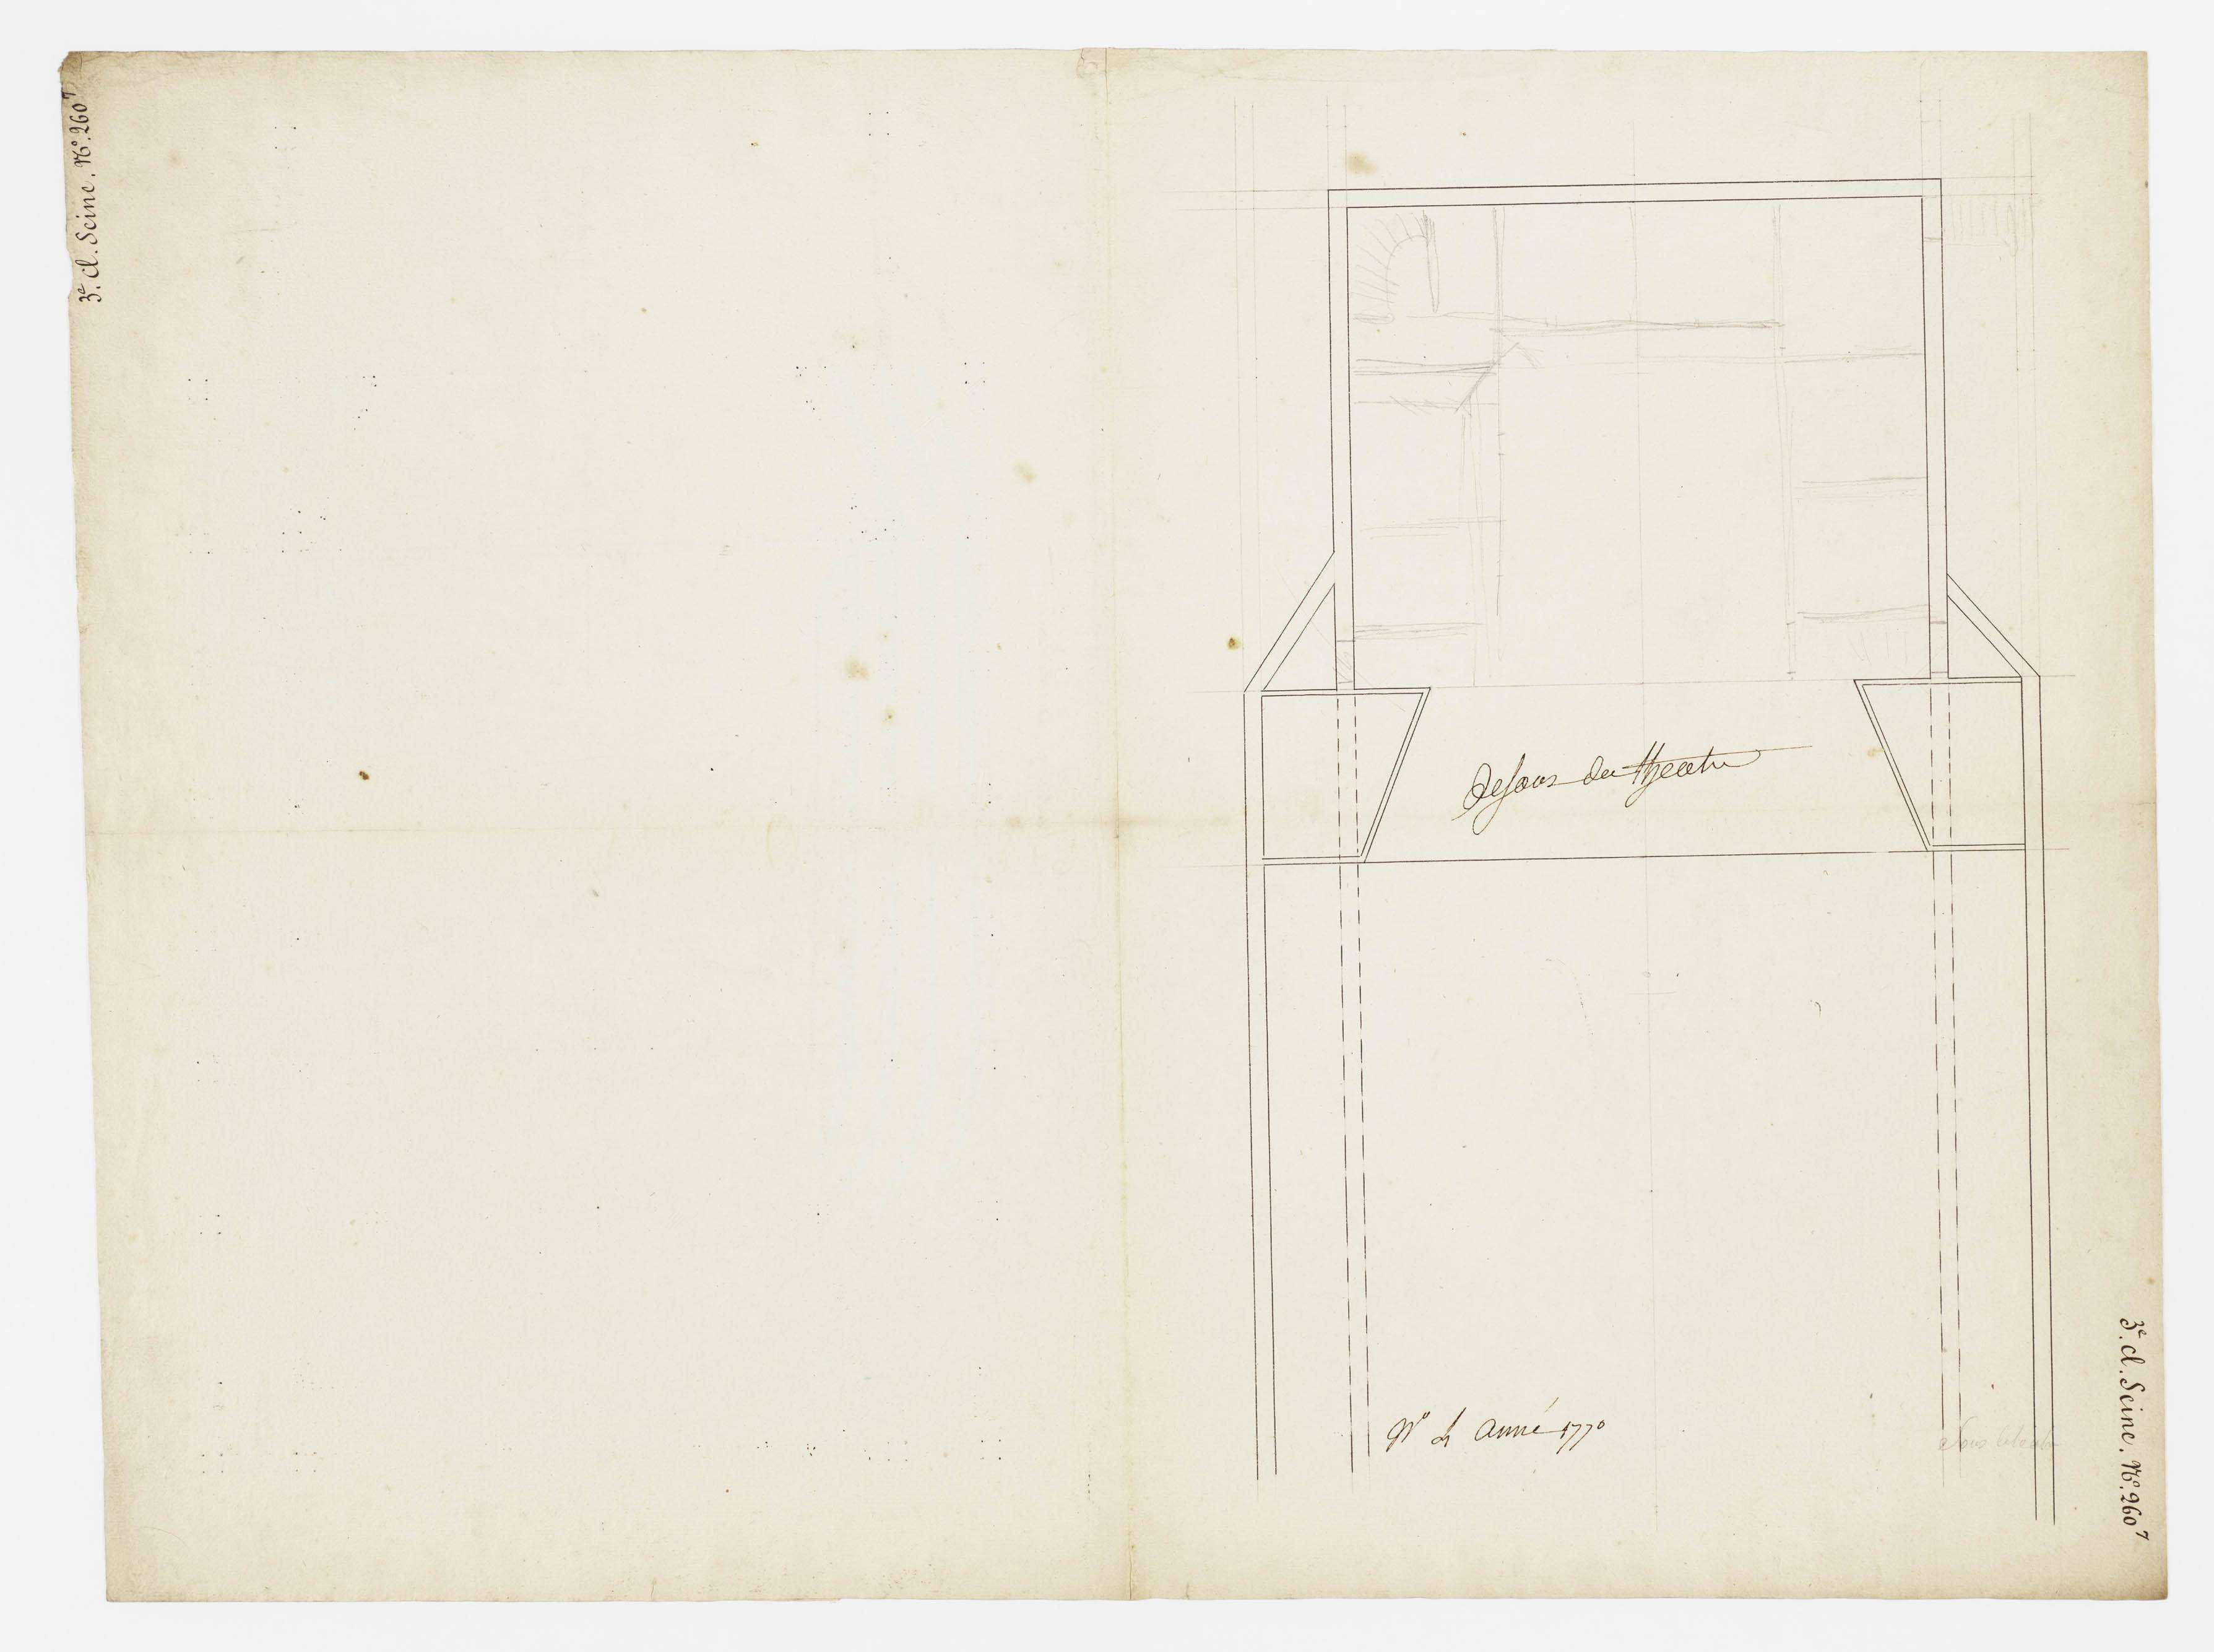 3.e cl. Seine. N.o 260 7
Dessous du theatre
N.o 4 Anné 1770
Sous
3.e cl. Seine. N.o 260 7